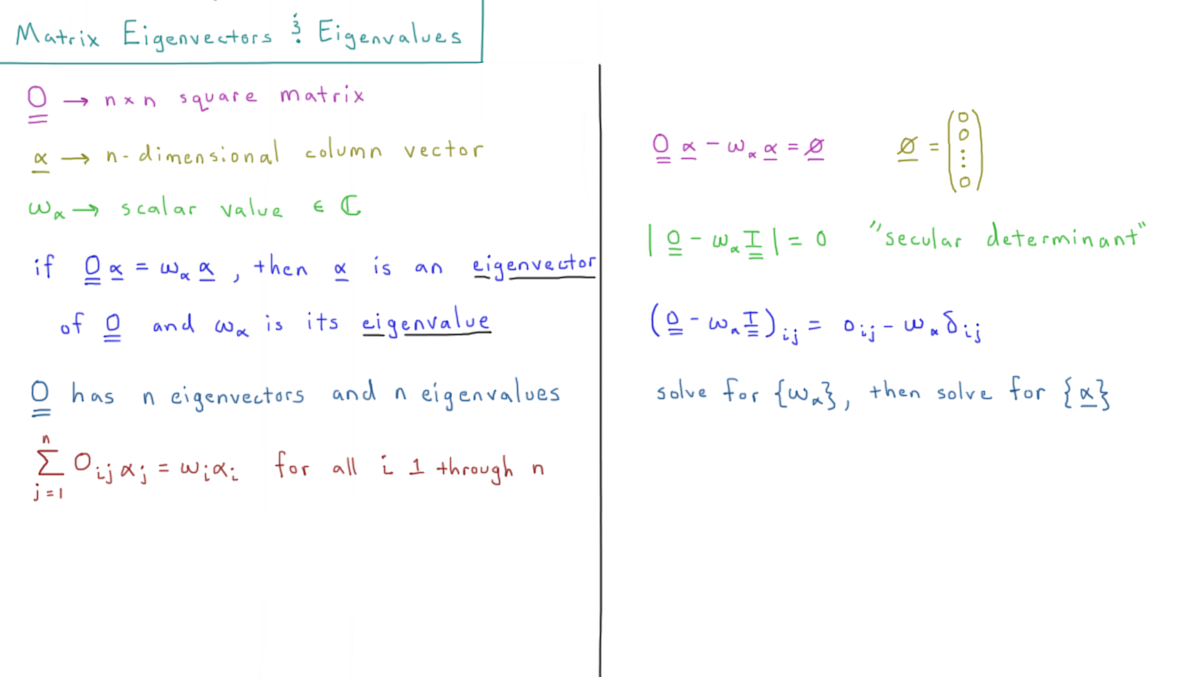 Matrix Eigenvectors & Eigenvalues
O → n×n square matrix
α → n-dimensional column vector
ω_α → scalar value ∈ ℂ
if O α = ω_α α, then α is an eigenvector
of O and ω_α is its eigenvalue
O has n eigenvectors and n eigenvalues
n
∑ O_ij α_j = ω_i α_i for all i 1 through n
j=1
O α - ω_α α = ∅ ∅ = (0 0 ⋮ 0)
| O - ω_α I | = 0 "secular determinant"
(O - ω_α I)_ij = O_ij - ω_α δ_ij
solve for {ω_α}, then solve for {α}